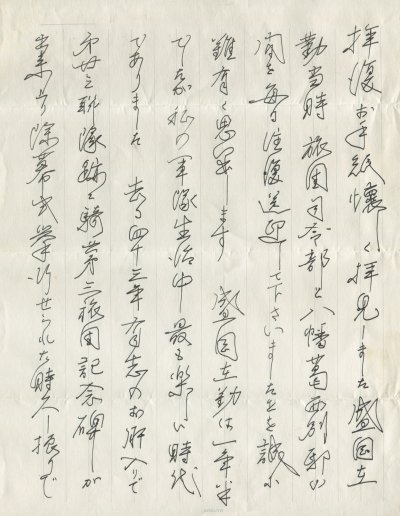 拝復お手紙懐しく拝見しました盛岡在
勤当時 旅団司令部と八幡葛西別邸の
間を毎日往復送迎して下さいましたことを誠に
難有く思出します 盛岡在勤は一年半
でしたが私の軍隊生活中最も楽しい時代
でありました 去る四十三年有志のお肝入りで
聯隊跡に騎兵第三旅団記念碑が
除幕式挙行せられた時久し振りで